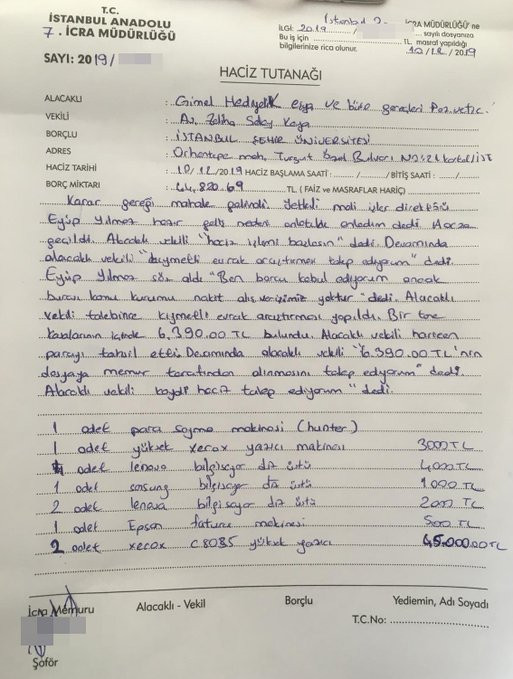 T.C.
İSTANBUL ANADOLU
7. İCRA MÜDÜRLÜĞÜ
SAYI: 2019/
İstanbul 2. İCRA MÜDÜRLÜĞÜ'ne
İLGİ: 2019 / sayılı dosyanıza
Bu iş için TL. masraf yapıldığı
bilgilerinize rica olunur. 10/12/2019
HACİZ TUTANAĞI
ALACAKLI : Gimel Hediyelik eşya ve büro gereçleri Paz. ve tic.
VEKİLİ : Av. Zeliha Kaya
BORÇLU : İSTANBUL ŞEHİR ÜNİVERSİTESİ
ADRES : Orhantepe mah. Turgut Özal Bulvarı N:21 kartal/İST
HACİZ TARİHİ : 10/12/2019 HACİZ BAŞLAMA SAATİ : ....../...... BİTİŞ SAATİ : ....../......
BORÇ MİKTARI : 44.820.69 TL ( FAİZ ve MASRAFLAR HARİÇ )
Karar gereği mahale gelindi. Yetkili mali işler direktörü
Eyüp Yılmaz hazır geliş nedeni anlatıldı anladım dedi. Hacze
geçildi. Alacaklı vekili "haciz işlemi başlasın" dedi. Devamında
alacaklı vekili "kıymetli evrak araştırması talep ediyorum" dedi.
Eyüp Yılmaz söz aldı "Ben borcu kabul ediyorum ancak
burası kamu kurumu nakit alışverişimiz yoktur" dedi. Alacaklı
vekili talebince kıymetli evrak araştırması yapıldı. Bir tane
kasalarının içinde 6,390.00 TL bulundu. Alacaklı vekili haricen
parayı tahsil etti. Devamında alacaklı vekili "6.390.00 TL'nin
dosyaya memur tarafından alınmasını talep ediyorum" dedi.
Alacaklı vekili kaydi haciz talep ediyorum" dedi.
1 adet para sayma makinesi (hunter)
1 adet yüksek xerox yazıcı makinası 3000 TL
adet lenova bilgisayar diz üstü 4000 TL
1 adet samsung bilgisayar diz üstü 1000 TL
2 adet lenova bilgisayar diz üstü 2000 TL
1 adet Epson fatura makinesi 500 TL
2 adet xerox C8035 yüksek yazıcı 45.000.00 TL
İcra Memuru Alacaklı - Vekil Borçlu Yediemin, Adı Soyadı
T.C.No: ..............................
Şoför